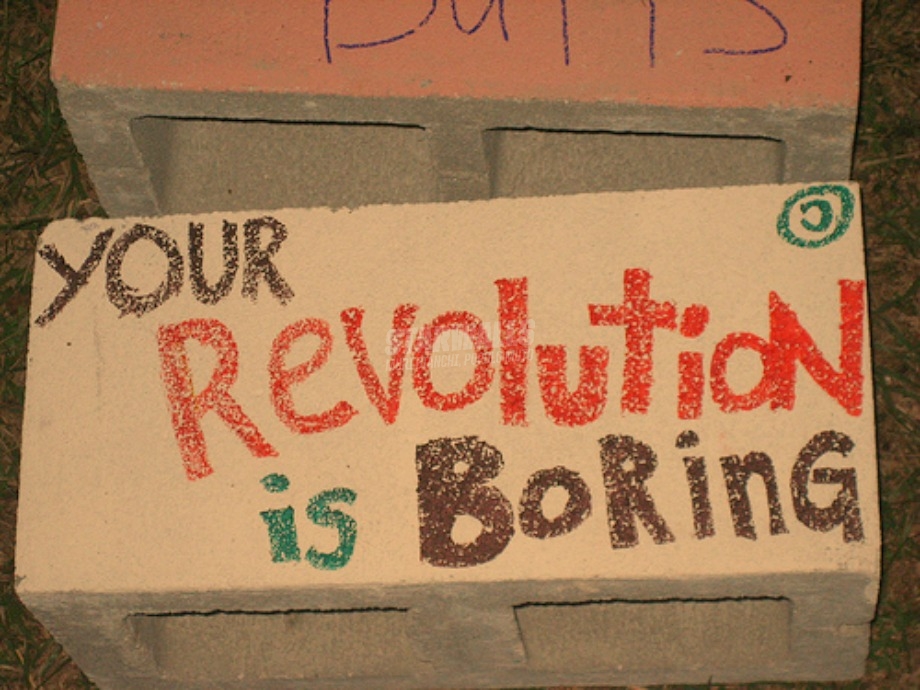 BUTTS
YOUR
REVOLUTION
is
BORinG